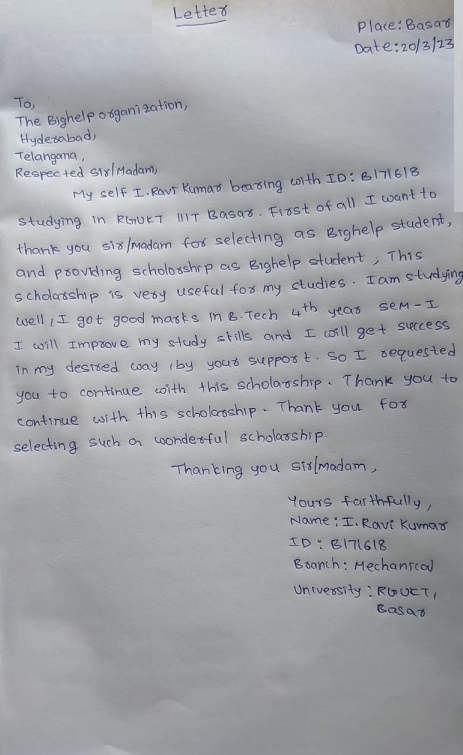 Letter
Place: Basar
Date: 20/3/23
To,
The Bighelp organization,
Hyderabad,
Telangana,
Respected sir/Madam,
My self I. Ravi Kumar bearing with ID: B171618
studying in RGUKT IIIT Basar. First of all I want to
thank you sir/madam for selecting as Bighelp student,
and providing scholorship as Bighelp student, This
scholarship is very useful for my studies. I am studying
well, I got good marks in B.Tech 4th year SEM-I
I will Improve my study skills and I will get success
in my desired way, by your support. So I requested
you to continue with this scholarship. Thank you to
continue with this scholarship. Thank you for
selecting such a wonderful scholarship.
Thanking you sir/madam,
Yours faithfully,
Name: I. Ravi Kumar
ID: B171618
Branch: Mechanical
University: RGUKT,
Basar